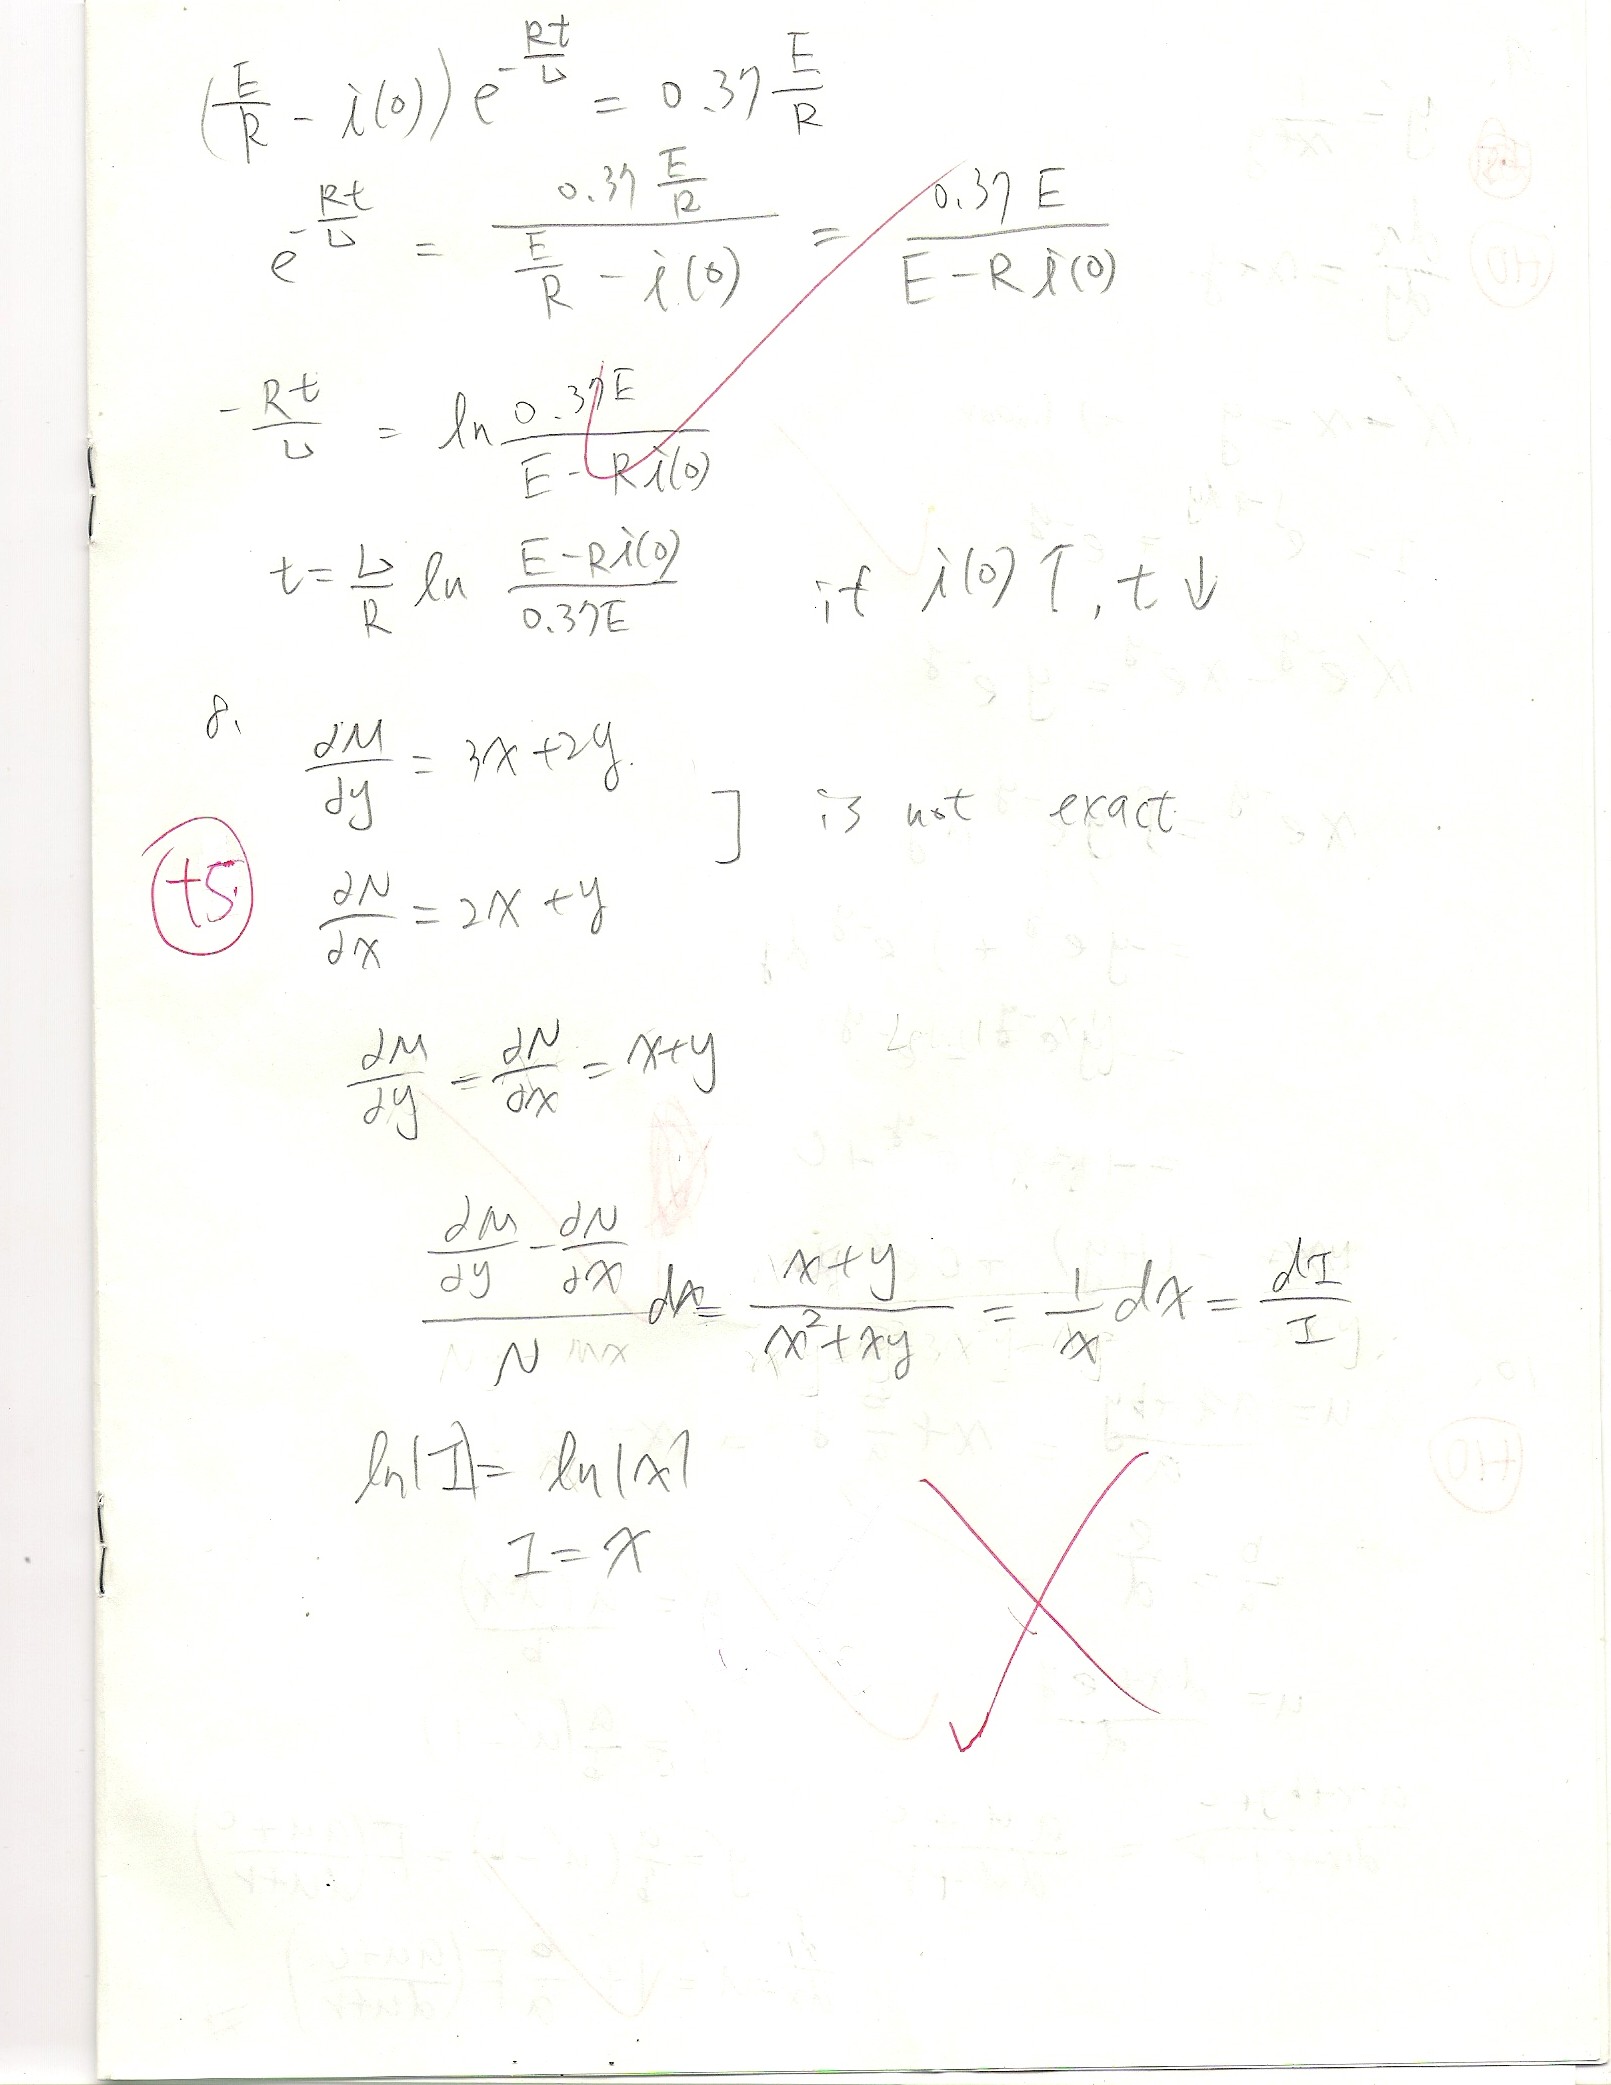 (E/R - i(0)) e^{-Rt/L} = 0.37 E/R
e^{-Rt/L} = (0.37 E/R)/(E/R - i(0)) = (0.37 E)/(E - R i(0))
-Rt/L = ln (0.37E)/(E - Ri(0))
t = L/R ln (E - Ri(0))/(0.37E)   if i(0) ↑, t ↓
8.
∂M/∂y = 3x + 2y
] is not exact
+5
∂N/∂x = 2x + y
∂M/∂y - ∂N/∂x = x+y
(∂M/∂y - ∂N/∂x)/N dx = (x+y)/(x²+xy) = 1/x dx = dI/I
ln|I| = ln|x|
I = x